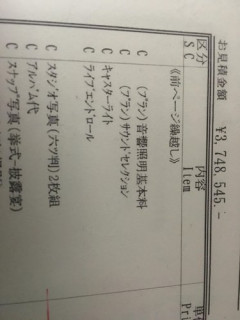 お見積金額
¥3,748,545.-
区分
S C
内容
Item
単
Pri
《前ページ繰越し》
C (プラン)音響照明基本料
C (プラン)サウンドセレクション
C キャスターライト
C ライブエンドロール
C スタジオ写真(六ツ判)2枚組
C アルバム代
C スナップ写真(挙式~披露宴)